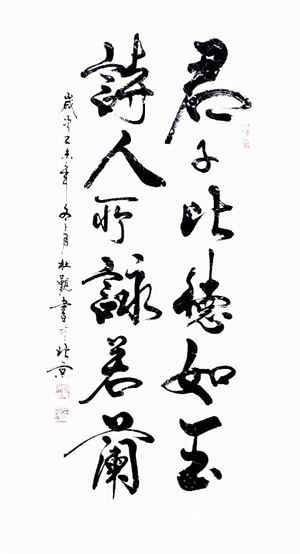 君子比德如玉
詩人所詠若蘭
歲當乙未年冬月杜甄書於北京